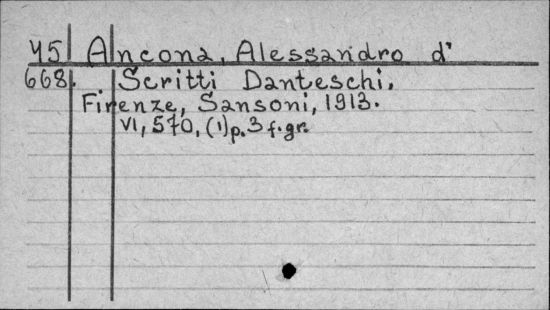 45 Ancona, Alessandro d'
668. Scritti Danteschi.
Firenze, Sansoni, 1913.
VI, 570, (1)p. 3 f. gr.